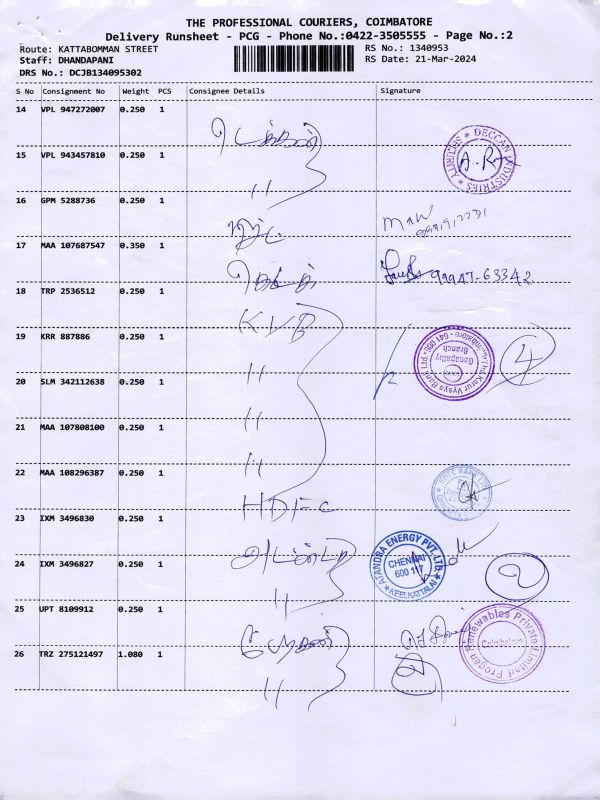 THE PROFESSIONAL COURIERS, COIMBATORE
Delivery Runsheet - PCG - Phone No.:0422-3505555 - Page No.:2
Route: KATTABOMMAN STREET
RS No.: 1340953
Staff: DHANDAPANI
RS Date: 21-Mar-2024
DRS No.: DCJB134095302
S No Consignment No Weight PCS Consignee Details Signature
14 VPL 947272007 0.250 1
15 VPL 943457810 0.250 1
"
DECCAN INDUSTRIES
SECURITY
16 GPM 5288736 0.250 1
17 MAA 107687547 0.350 1
99947-63342
18 TRP 2536512 0.250 1
KVB
19 KRR 887886 0.250 1
"
The Karur Vysya Bank
Ganapathy Branch
4
20 SLM 342112638 0.250 1
"
21 MAA 107808100 0.250 1
"
22 MAA 108296387 0.250 1
HDFC
23 IXM 3496830 0.250 1
24 IXM 3496827 0.250 1
"
ATANDRA ENERGY PVT. LTD.
CHENNAI
600 117
KEELKATTALAI
2
25 UPT 8109912 0.250 1
26 TRZ 275121497 1.080 1
"
Progen Renewables Private Limited
Coimbatore